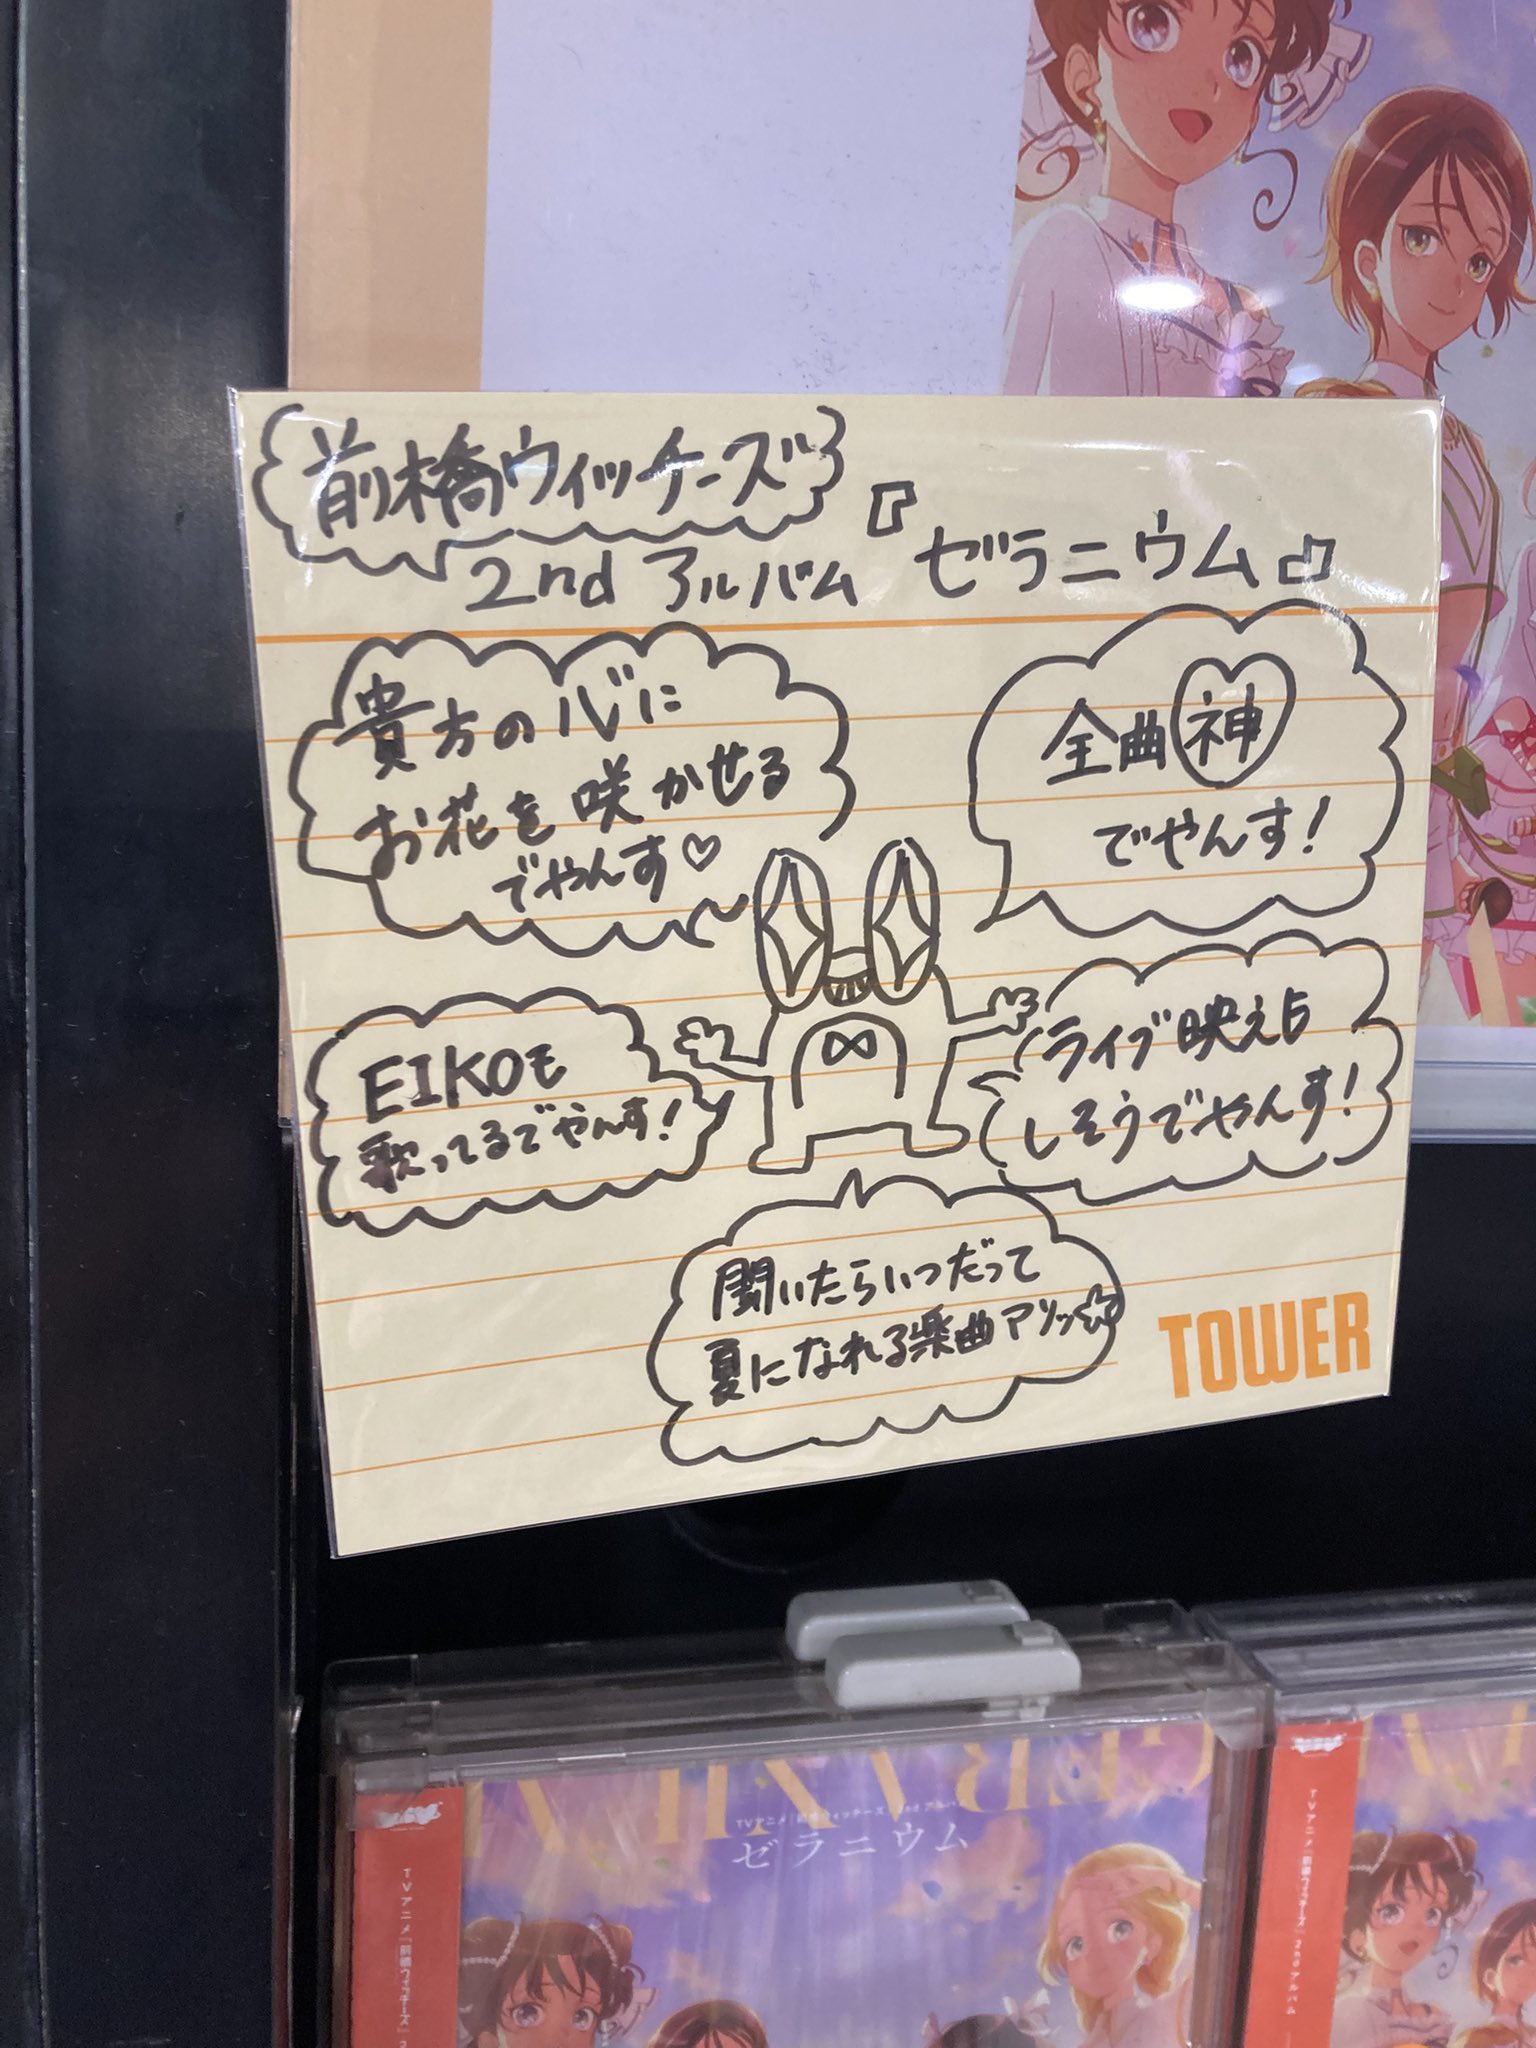 前橋ウィッチーズ
2ndアルバム『ゼラニウム』
貴方の心に
お花を咲かせる
でやんす♡
全曲神
でやんす!
EIKOも
歌ってるでやんす!
ライブ映え
しそうでやんす!
聞いたらいつだって
夏になれる楽曲アリッ☆
TOWER
TVアニメ「前橋ウィッチーズ」2nd アルバム
ゼラニウム
TVアニメ「前橋ウィッチーズ」2
TVアニメ「前橋ウィッチーズ」2ndアルバム